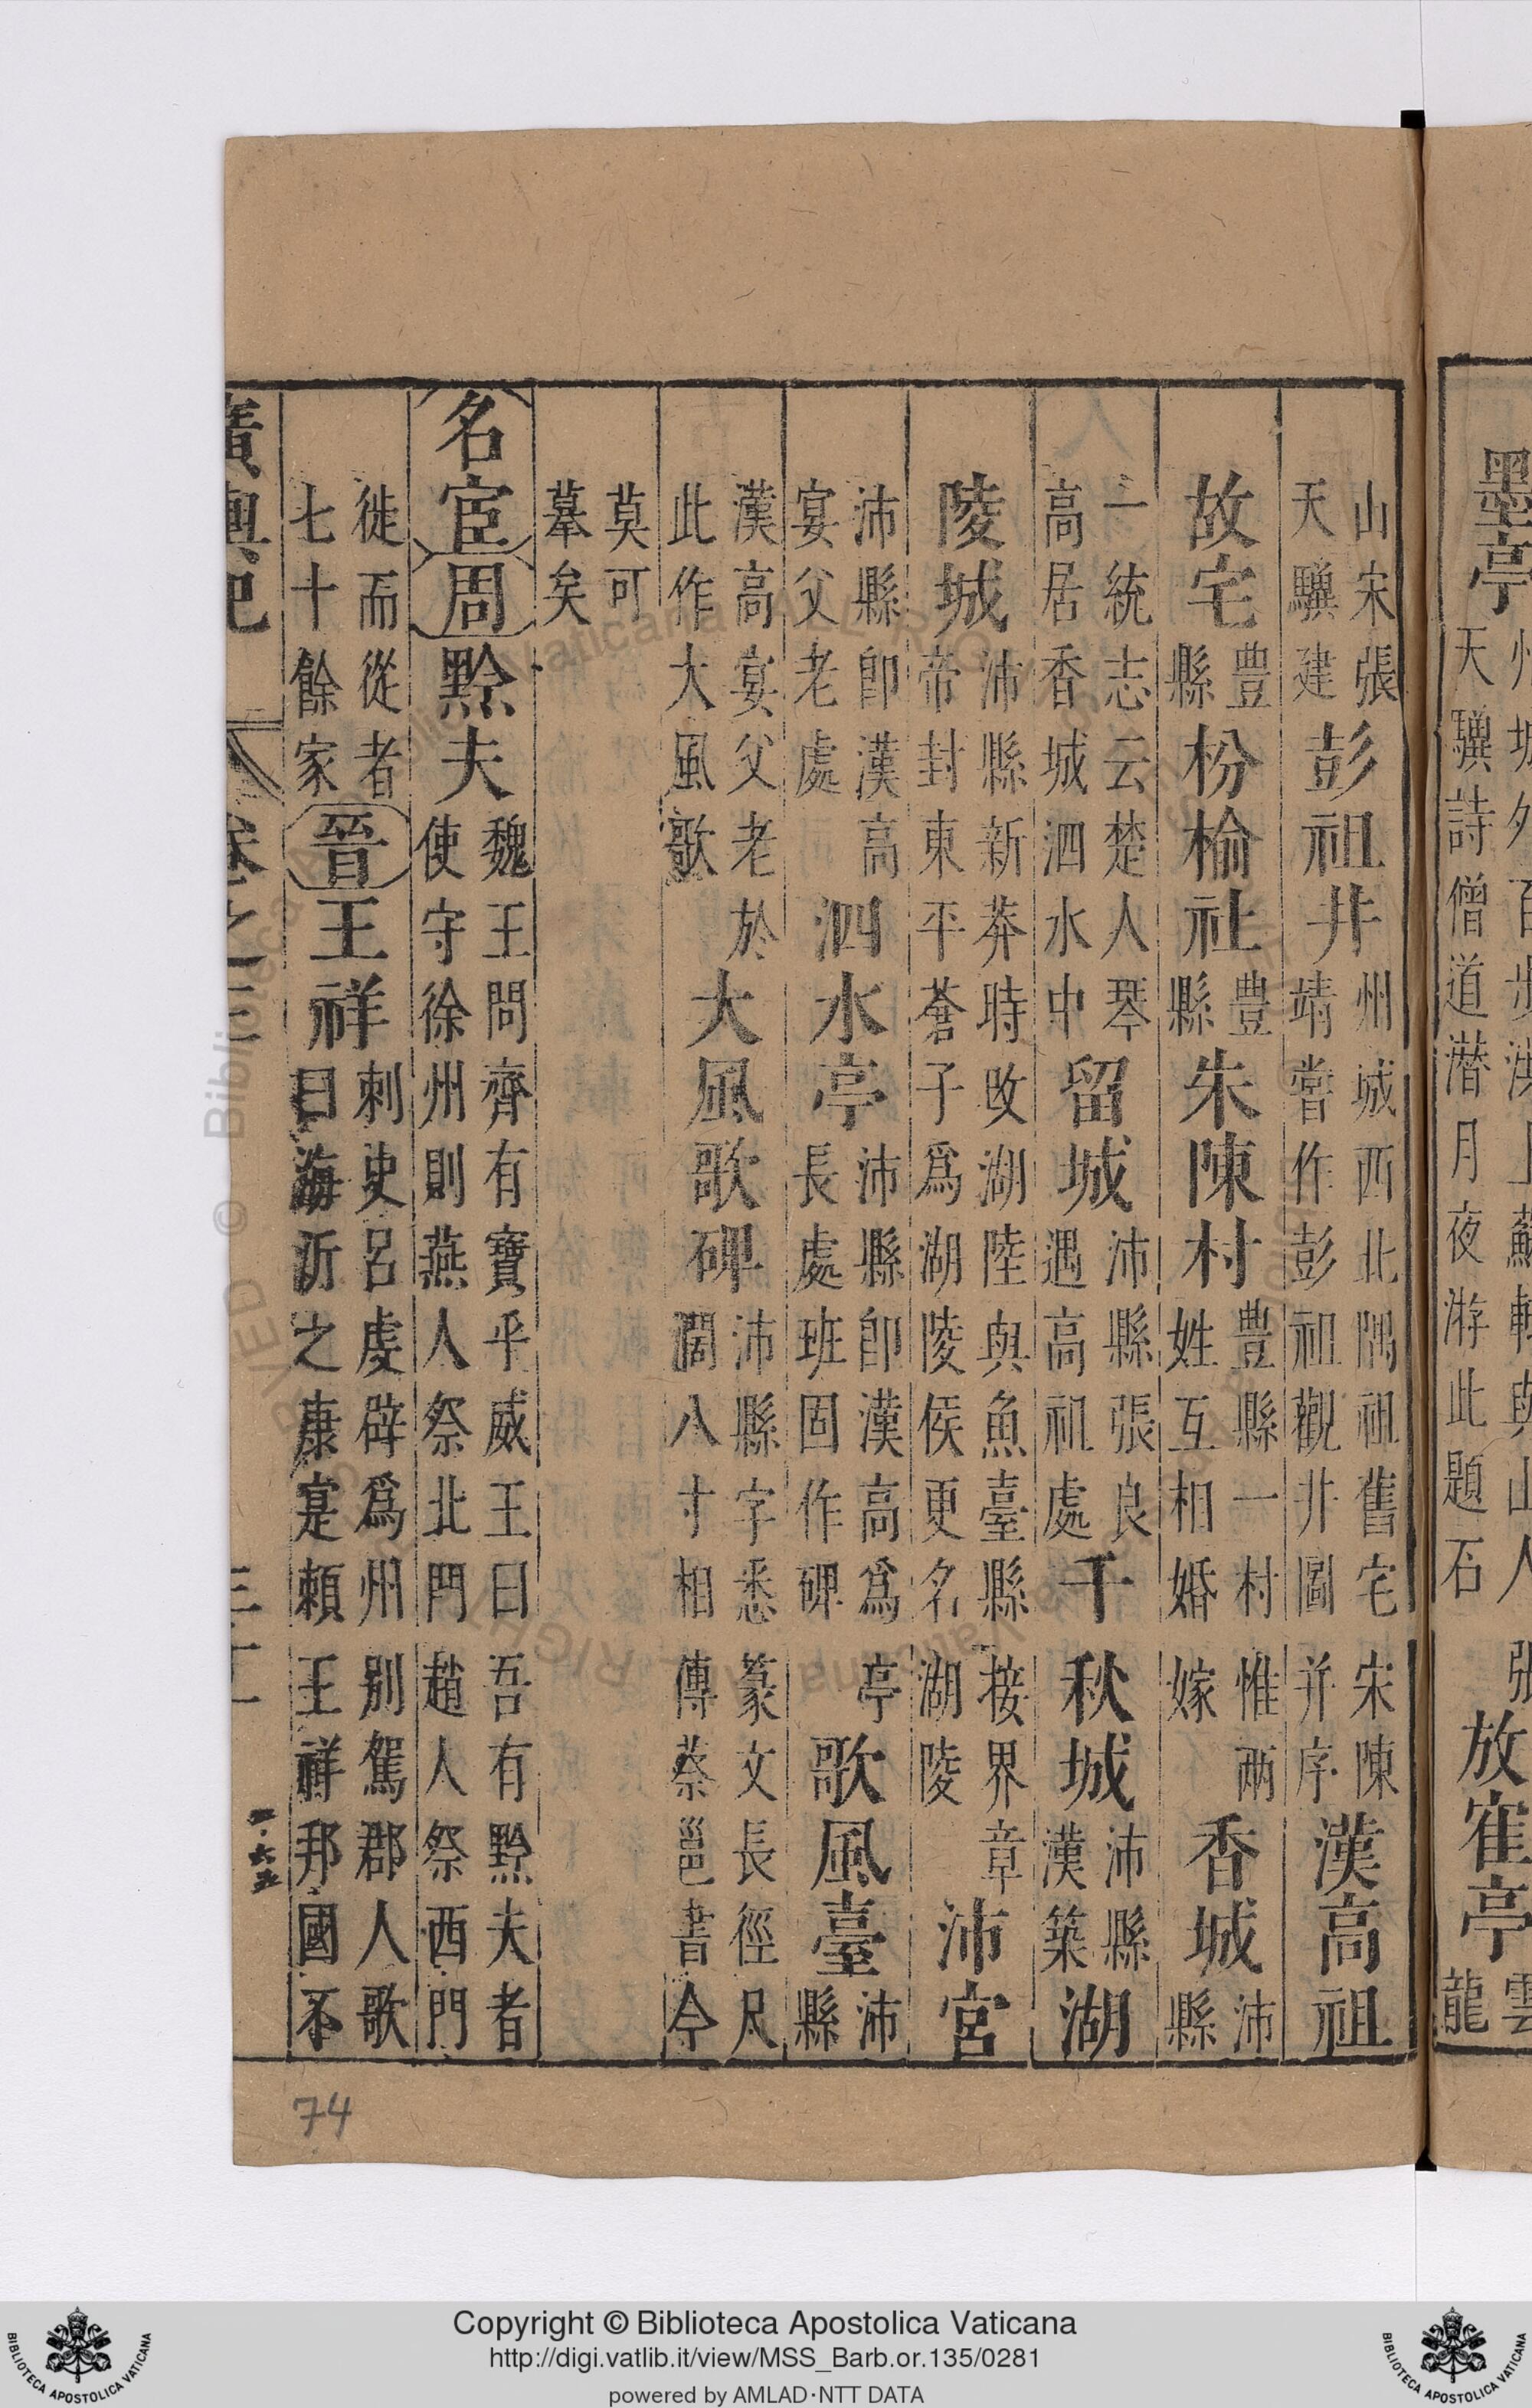 墨亭
天驥詩僧道潛月夜游此題石
放寉亭
雲
龍
山宋張
天驥建
彭祖井
州城西北隅祖舊宅宋陳
靖嘗作彭祖觀井圖并序
漢高祖
故宅
豊
縣
枌榆社
豊
縣
朱陳村
豊縣一村惟兩
姓互相婚嫁
香城
沛
縣
一統志云楚人琴
高居香城泗水中
留城
沛縣張良
遇高祖處
千秋城
沛縣
漢築
湖
陵城
沛縣新莽時改湖陸與魚臺縣接界章
帝封東平蒼子爲湖陵侯更名湖陵
沛宮
沛縣卽漢高
宴父老處
泗水亭
沛縣卽漢高爲亭
長處班固作碑
歌風臺
沛
縣
漢高宴父老於
此作大風歌
大風歌碑
沛縣字悉篆文長徑尺
濶八寸相傳蔡邕書今
莫可
摹矣
名宦
周
黔夫
魏王問齊有寶乎威王曰吾有黔夫者
使守徐州則燕人祭北門趙人祭西門
徙而從者
七十餘家
晉
王祥
刺史呂虔辟爲州別駕郡人歌
曰海沂之康寔賴王祥邦國不
廣輿記
卷之三
74
BIBLIOTECA APOSTOLICA VATICANA
Copyright © Biblioteca Apostolica Vaticana
http://digi.vatlib.it/view/MSS_Barb.or.135/0281
powered by AMLAD·NTT DATA
BIBLIOTECA APOSTOLICA VATICANA